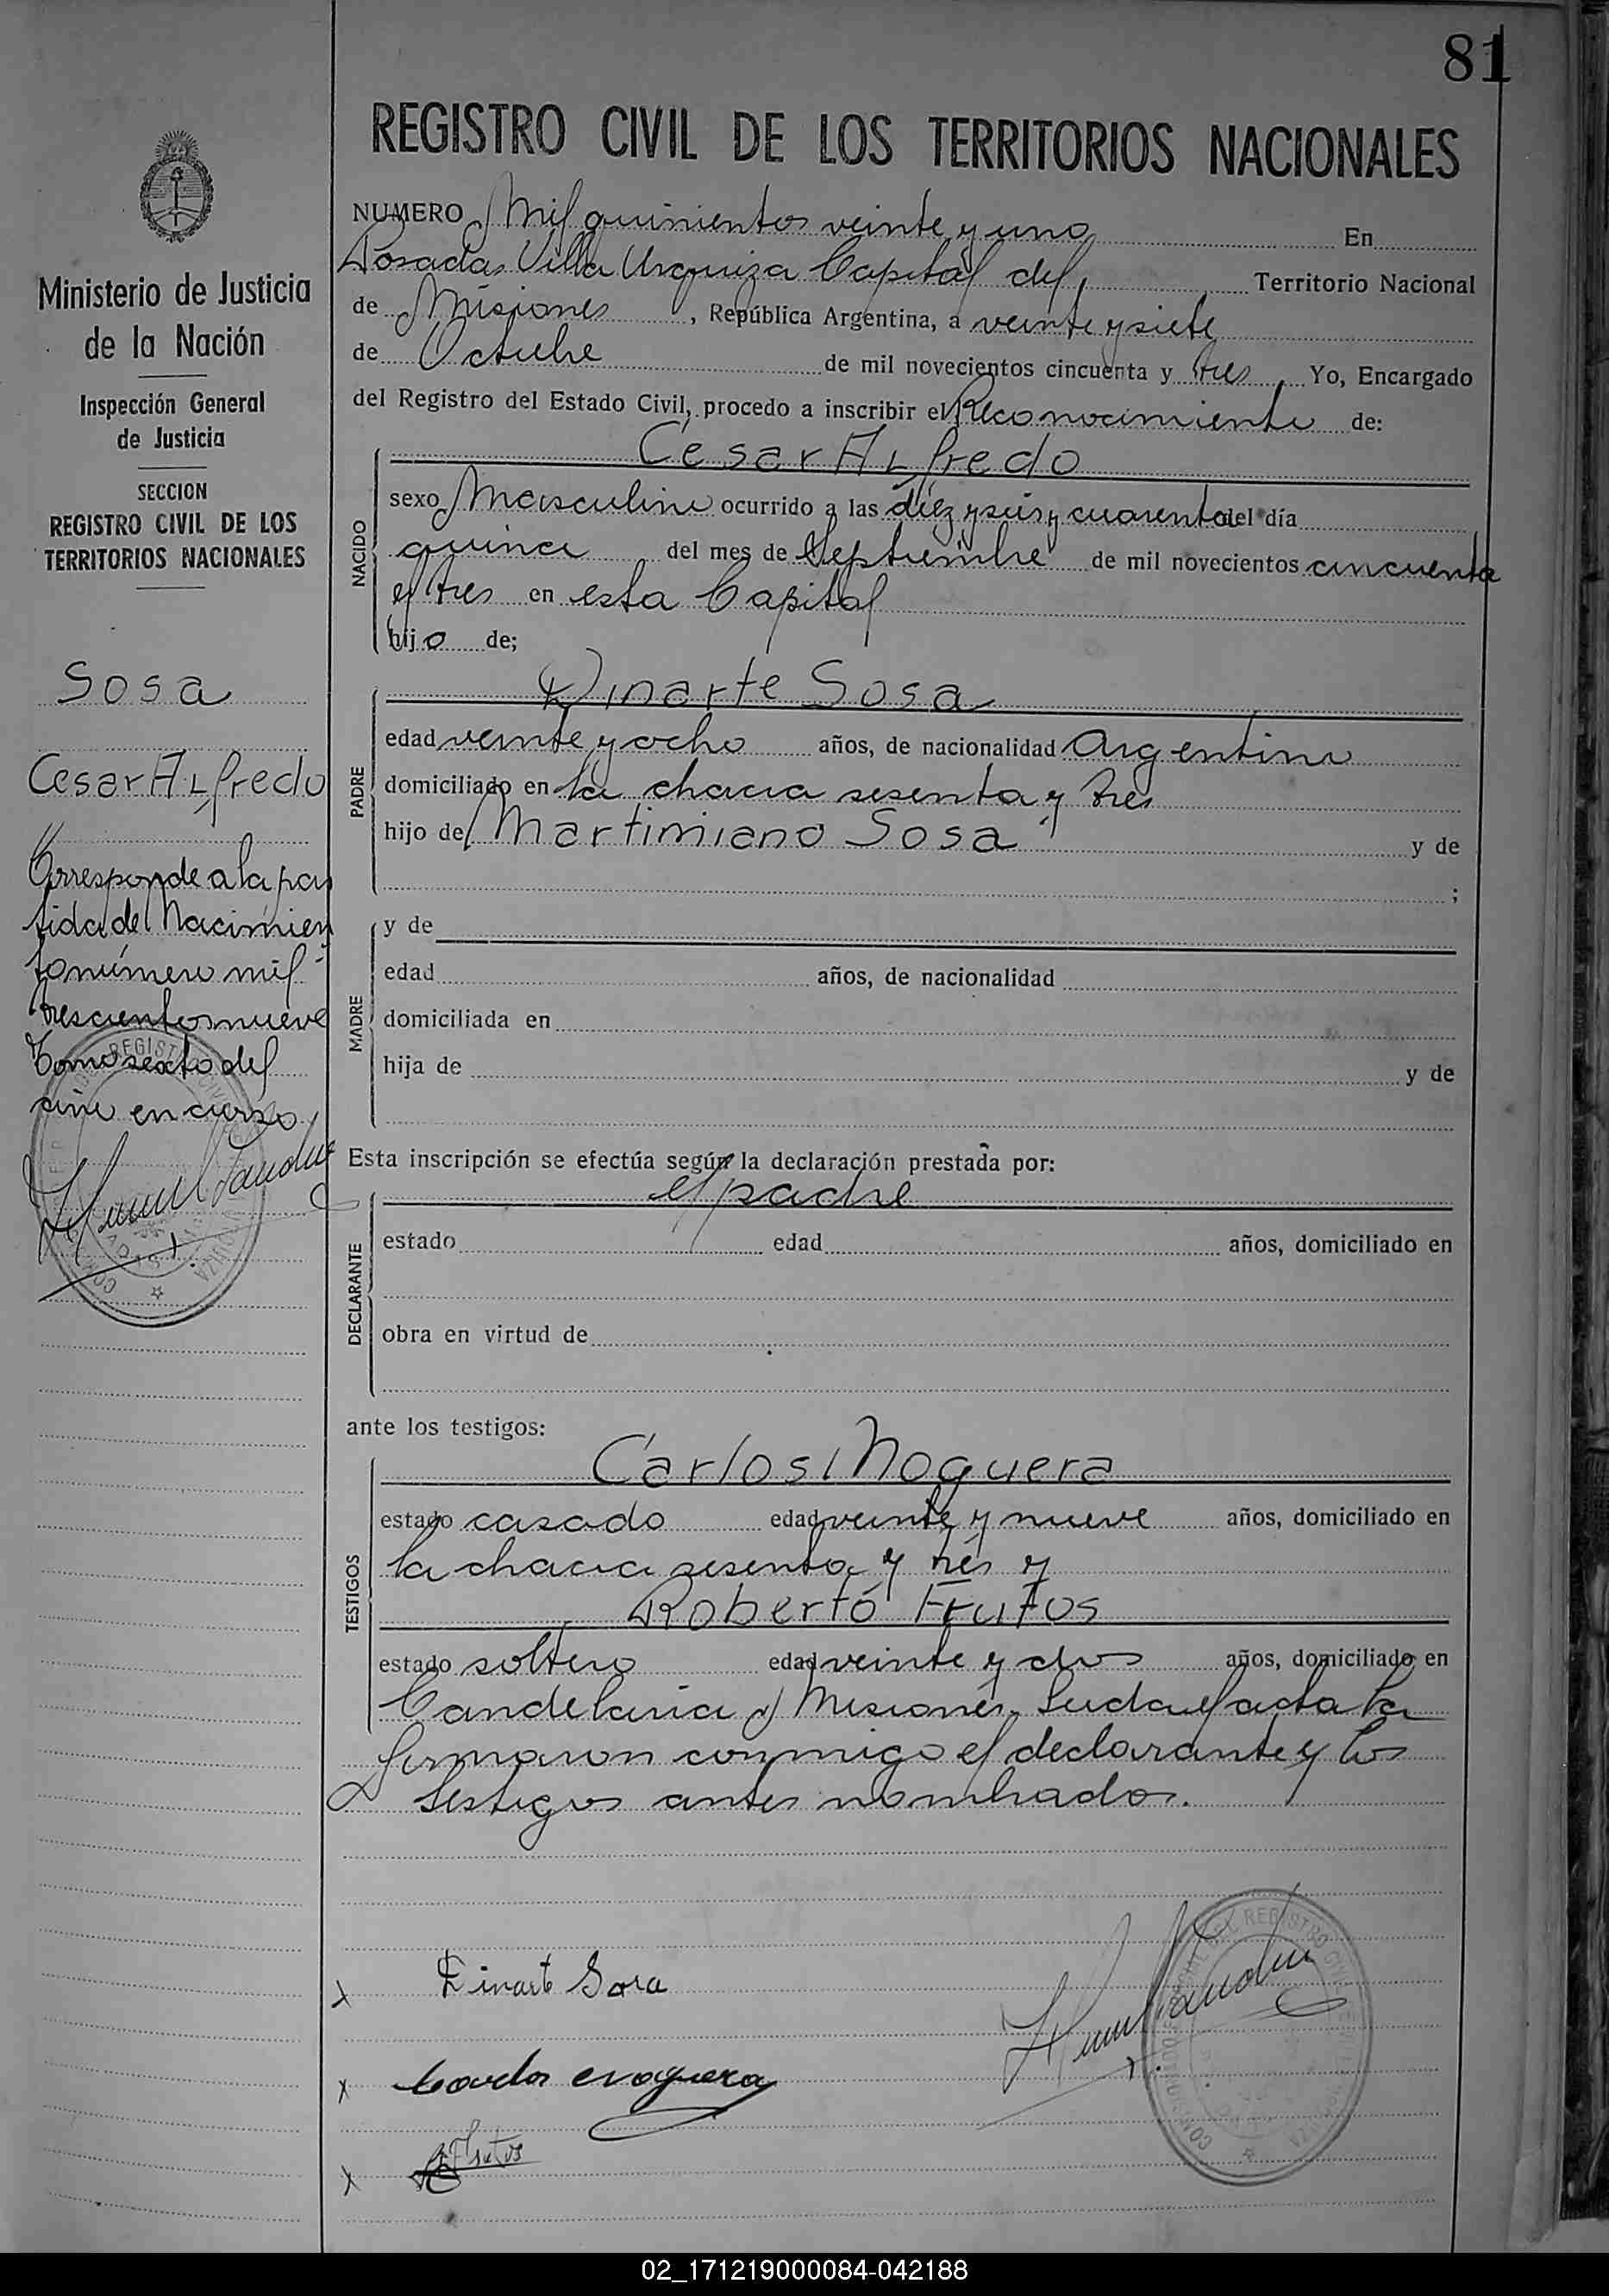 81
REGISTRO CIVIL DE LOS TERRITORIOS NACIONALES
Ministerio de Justicia
de la Nación
Inspección General
de Justicia
SECCION
REGISTRO CIVIL DE LOS
TERRITORIOS NACIONALES
Sosa
Cesar Alfredo
Corresponde a la par
tida de Nacimien
to número mil
trescientos nueve
Tomo sexto del
año en curso
NUMERO Mil quinientos veinte y uno En
Posadas Villa Urquiza Capital del Territorio Nacional
de Misiones , República Argentina, a veinte y siete
de Octubre de mil novecientos cincuenta y tres Yo, Encargado
del Registro del Estado Civil, procedo a inscribir el Reconocimiento de:
NACIDO
Cesar Alfredo
sexo Masculino ocurrido a las diez y seis y cuarenta del día
quince del mes de Septiembre de mil novecientos cincuenta
y tres en esta Capital
hijo de;
PADRE
Dinarte Sosa
edad veinte y ocho años, de nacionalidad Argentino
domiciliado en la chacra sesenta y tres
hijo de Martimiano Sosa y de
;
MADRE
y de
edad años, de nacionalidad
domiciliada en
hija de y de
Esta inscripción se efectúa según la declaración prestada por:
DECLARANTE
el padre
estado edad años, domiciliado en
obra en virtud de
ante los testigos:
TESTIGOS
Carlos Noguera
estado casado edad veinte y nueve años, domiciliado en
la chacra sesenta y tres y
Roberto Frutos
estado soltero edad veinte y dos años, domiciliado en
Candelaria Misiones. Leida el acta la
firmaron conmigo el declarante y los
testigos antes nombrados.
x Dinarte Sosa
x Carlos Noguera
x Frutos
02_171219000084-042188